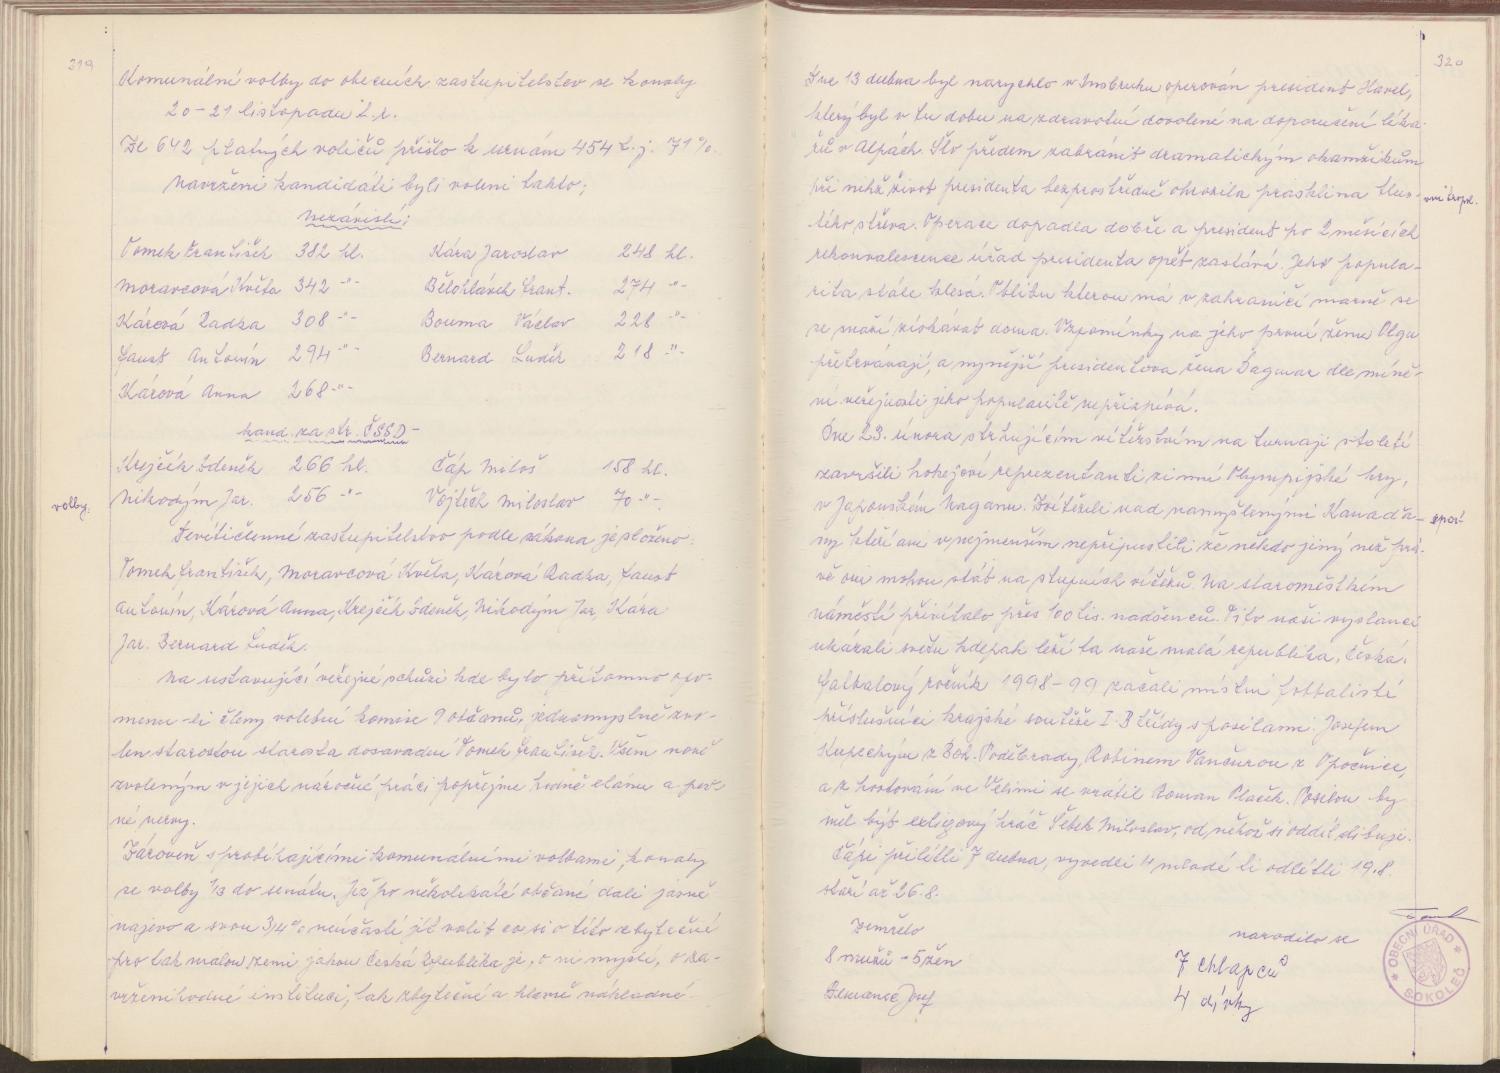 319
Komunální volby do obecních zastupitelstev se konaly
20-21 listopadu t.r.
Ze 642 platných voličů přišlo k urnám 454 t.j. 71%.
Navrženi kandidáti byli voleni takto;
Nezávislí;
Tomek František 382 hl. Kára Jaroslav 248 hl.
Moravcová Květa 342 -"- Bělohlávek Frant. 274 -"-
Kárová Radka 308 -"- Bouma Václav 228 -"-
Faust Antonín 294 -"- Bernard Luděk 218 -"-
Kárová Anna 268 -"-
kand. za str. ČSSD-
Krejčík Zdeněk 266 hl. Čáp Miloš 158 hl.
volby. Nikodým Jar. 256 -"- Vojtěch Miloslav 70 -"-
Devítičlenné zastupitelstvo podle zákona je složeno:
Tomek František, Moravcová Květa, Kárová Radka, Faust
Antonín, Kárová Anna, Krejčík Zdeněk, Nikodým Jar, Kára
Jar. Bernard Luděk.
Na ustavující veřejné schůzi kde bylo přítomno opo-
menu-li členy volební komise 9 občanů, jednomyslně zvo-
len starostou starosta dosavadní Tomek František. Všem nově
zvoleným v jejich náročné práci popřejme hodně elánu a pev-
né nervy.
Zároveň s probíhajícími komunálními volbami, konaly
se volby 1/3 do senátu. Již po několikáté občané dali jasně
najevo a svou 3/4% neúčastí jít volit co si o této zbytečné
pro tak malou zemi jakou Česká Republika je, o ní myslí, o za-
vrženihodné instituci, tak zbytečné a hlavně nákladné.
320
Dne 13 dubna byl narychlo v Insbruku operován president Havel,
který byl v tu dobu na zdravotní dovolené na doporučení léka-
řů v Alpách. Šlo předem zabránit dramatickým okamžikům
při nichž život presidenta bezprostředně ohrozila prasklina tlus-
tého střeva. Operace dopadla dobře a president po 2 měsících
rekonvalescence úřad presidenta opět zastává. Jeho popula-
rita stále klesá. Oblibu kterou má v zahraničí marně se
se snaží získávat doma. Vzpomínky na jeho první ženu Olgu
přetrvávají, a nynější presidentova žena Dagmar dle míně-
ní veřejnosti jeho popularitě nepřispívá.
Dne 23. února strhujícím vítězstvím na turnaji století
završili hokejoví reprezentanti zimní Olympijské hry,
v Japonském Naganu. Zvítězili nad namyšlenými Kanaďa- sport
ny kteří ani v nejmenším nepřipustili že někdo jiný než prá-
vě oni mohou stát na stupních vítězů. Na staroměstkém
náměstí přivítalo přes 100 tis. nadšenců. Tito naši vyslanci
ukázali světu kdepak leží ta naše malá republika, Česká.
Fotbalový ročník 1998-99 začali místní fotbalisté
příslušníci krajské soutěže I.B třídy s posilami. Josefem
Kupeckým z Boh. Poděbrady, Robinem Vančurou z Opočnice,
a z hostování ve Velimi se vrátil Roman Plaček. Posilou by
měl být exligový hráč Šebek Miloslav, od něhož si oddíl slibuje.
Čápi přilétli 7 dubna, vyvedli 4 mladé ti odlétli 19.8.
staří až 26.8.
Zemřelo narodilo se
8 mužů - 5 žen 7 chlapců
Josef 4 dívky
OBECNÍ ÚŘAD
SOKOLEČ